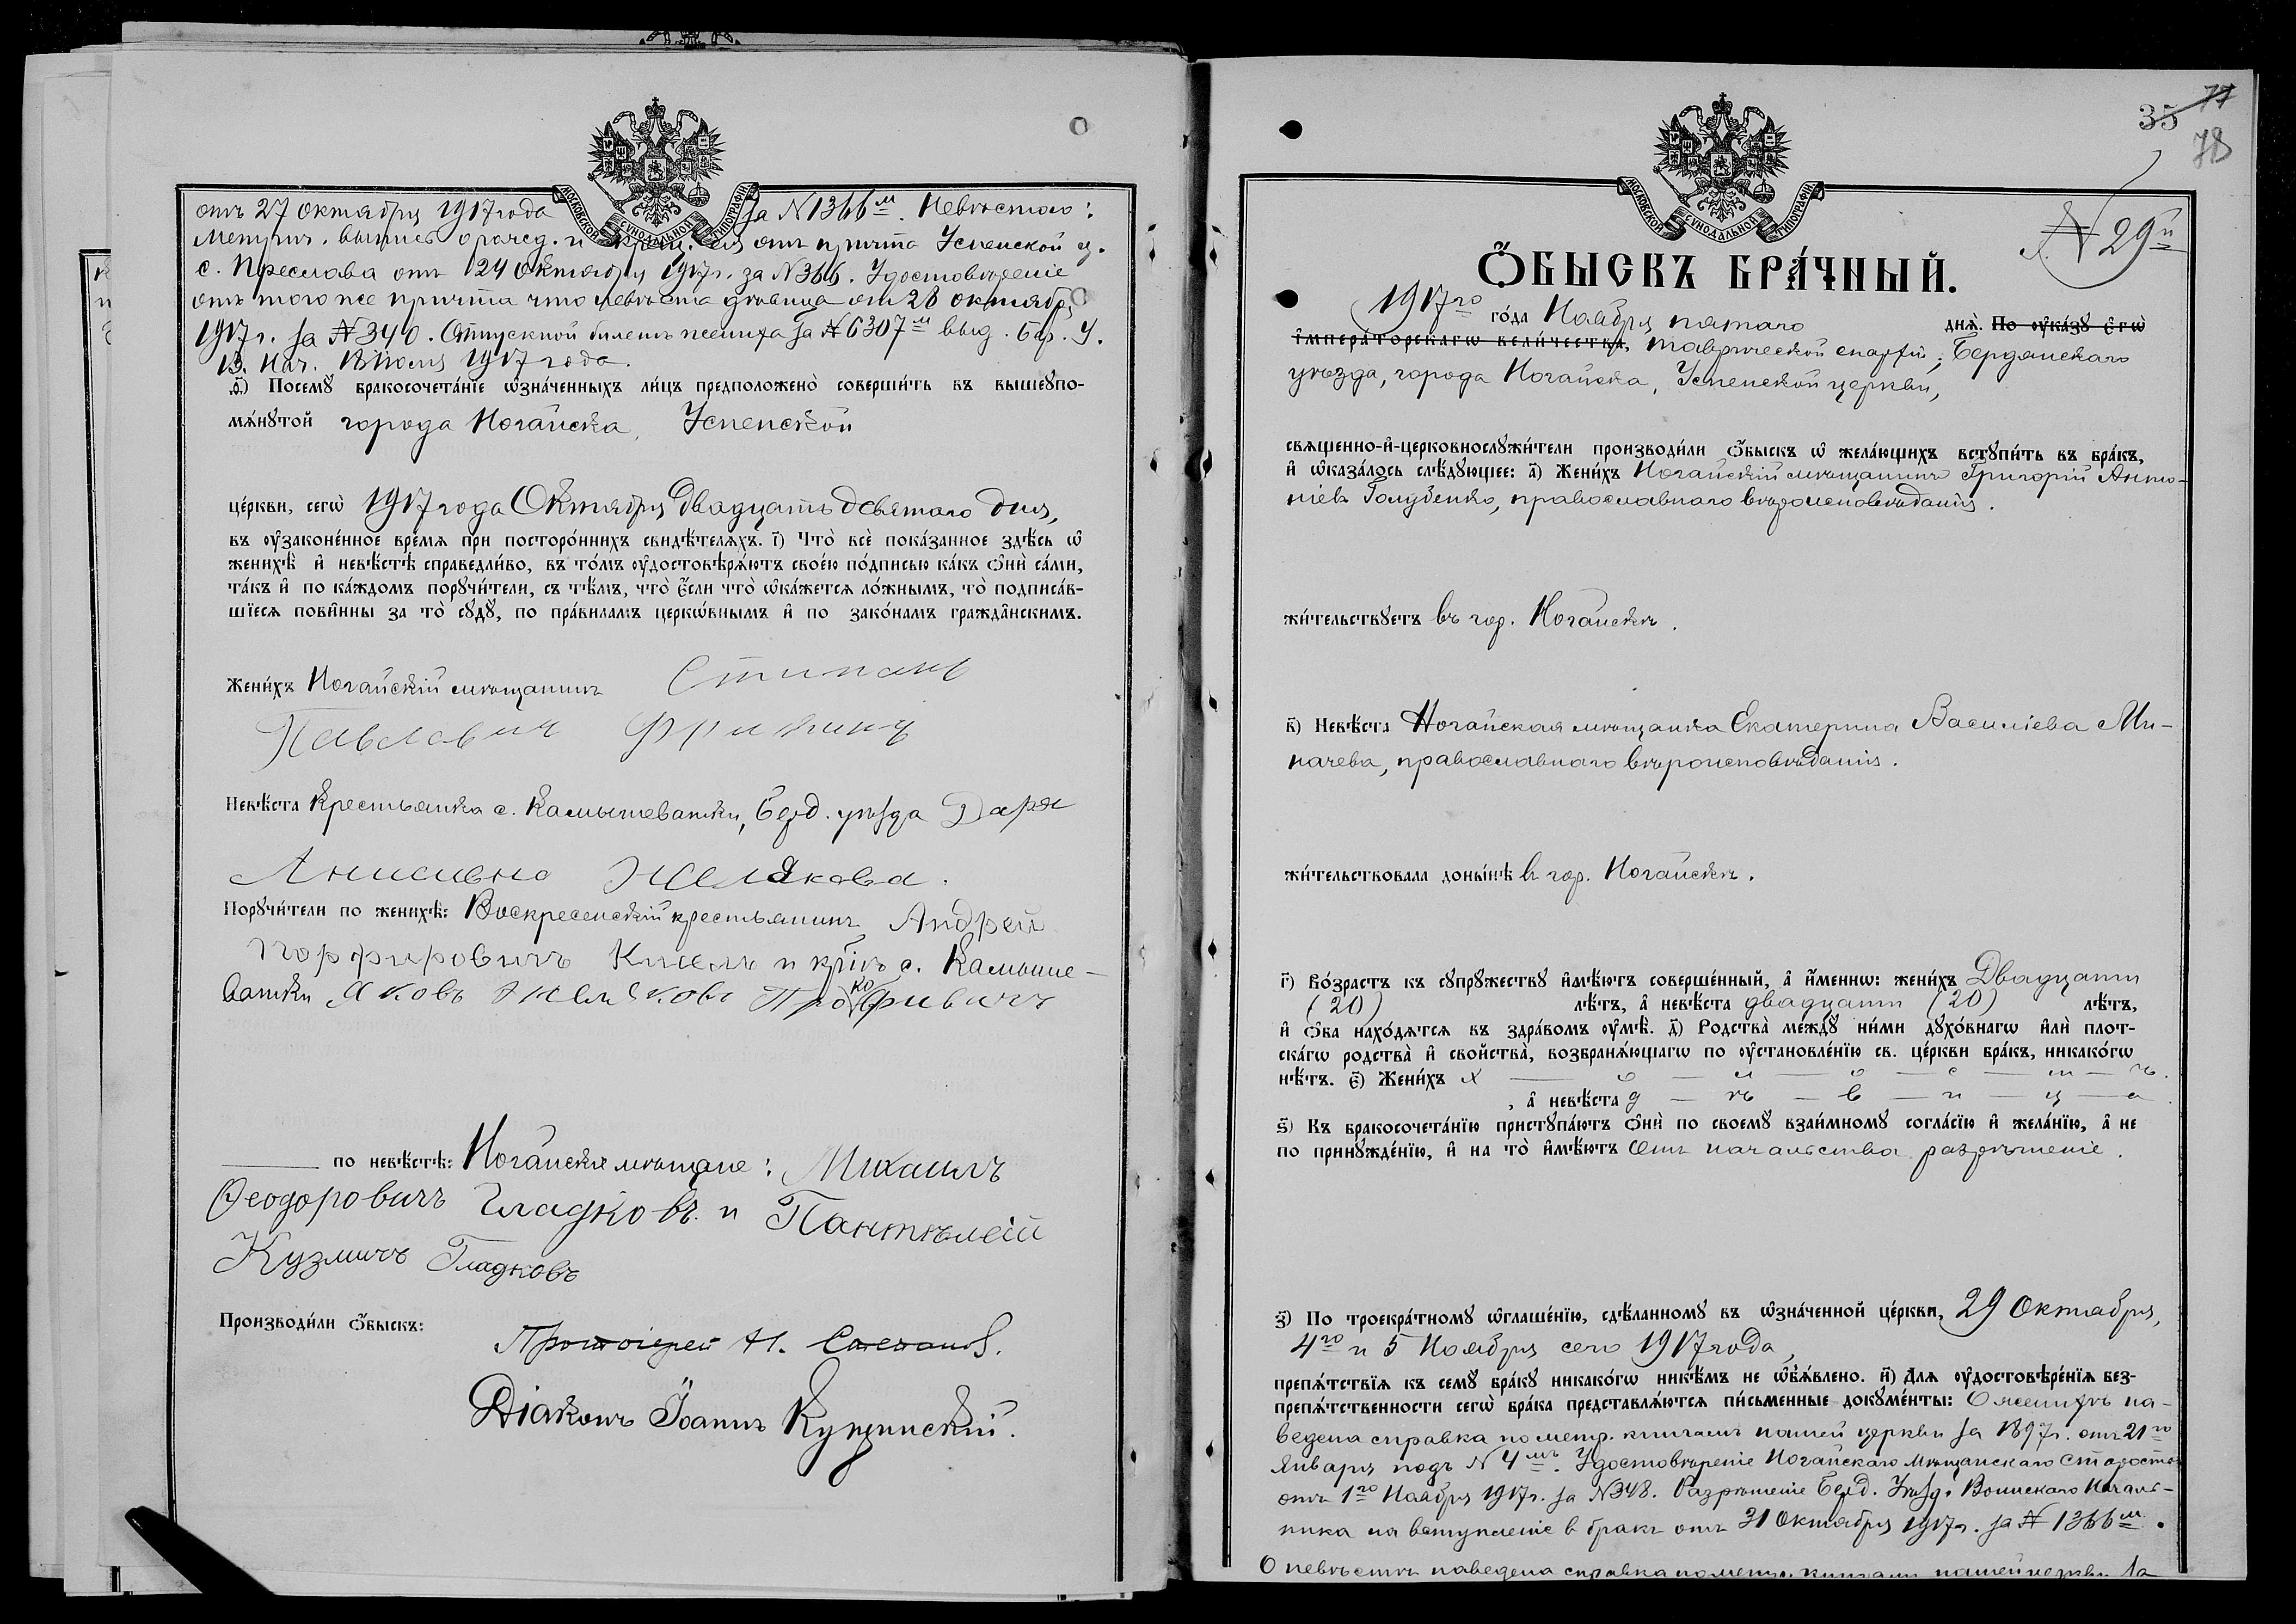 МОСКОВСКОЙ СѴНОДАЛЬНОЙ ТИПОГРАФІИ
отъ 27 Октября 1917 года за № 1366м. Невѣстою:
с. Преслава отъ 24 Октября 1917 г. за № 366. Удостовѣреніе
отъ того же причта что невѣста дѣвица от 28 октября
1917 г. за № 340. Отпускной билетъ жениха за № 6307м выд. Бер. У.
В. Нач. 1917 года.
Посемꙋ̀ бракосочета́нїе ѡзна́ченныхъ ли́цъ предположено̀ соверши́ть въ вышеꙋпо-
мѧ́нꙋтой города Ногайска, Успенской
це́ркви, сегѡ̀ 1917 года Октября Двадцать девятаго дня,
въ ᲂу҆законе́нное вре́мѧ при посторо́ннихъ свидѣ́телѧхъ. і҃) Что̀ всѐ пока́занное здѣ́сь ѡ҆
женихѣ̀ и҆ невѣ́стѣ справедли́во, въ то́мъ ᲂу҆достовѣрѧ́ютъ свое́ю по́дписью ка́къ ѻ҆нѝ са́ми,
та́къ и҆ по ка́ждомъ порꙋчи́тели, съ тѣ́мъ, что̀ є҆́сли что̀ ѡ҆ка́жетсѧ ло́жнымъ, то̀ подписа́в-
шїесѧ пови́нны за то̀ сꙋдꙋ̀, по пра́виламъ церко́внымъ и҆ по зако́намъ гражда́нскимъ.
Жени́хъ Ногайскій мѣщанинъ Стипанъ
Павлавич
Невѣ́ста Крестьянка с. Камышеватки, Берд. уѣзда Даря
Анисивна Желякова.
Порꙋчи́тели по женихѣ̀: Воскресенскій крестьянинъ Андрей
Порфировичъ Кисель и кр-інъ с. Камыше-
ватки Яковъ Желяковъ
по невѣ́стѣ: Ногайскіе мѣщане: Михаилъ
Феодоровичъ Гладковъ и Пантѣлей
Кузмичъ Гладковъ
Производи́ли ѻ҆́быскъ:
Протоіерей Н.
Діаконъ Іоаннъ
35 77
78
МОСКОВСКОЙ СѴНОДАЛЬНОЙ ТИПОГРАФІИ
№ 29й
Ѻ҆́БЫСКЪ БРА́ЧНЫЙ.
1917го го́да Ноября пятаго днѧ̀. По ᲂу҆ка́зꙋ є҆гѡ̀
і҆мпера́торскагѡ вели́чества, Таврической епархіи, Бердянскаго
уѣзда, города Ногайска, Успенской церкви,
свѧще́нно-и҆-церковнослꙋжи́тели производи́ли ѻ҆́быскъ ѡ҆ жела́ющихъ встꙋпи́ть въ бра́къ,
и҆ ѡ҆каза́лось слѣ́дꙋющее: а҃) Жени́хъ Ногайскій мѣщанинъ Григорій Анто-
ніевъ Голубенко, православнаго вѣроисповѣданія.
жи́тельствꙋетъ въ гор. Ногайскѣ.
в҃) Невѣ́ста Ногайская мѣщанка Екатерина Васильева Ми-
начева, православнаго вѣроисповѣданія.
жи́тельствовала доны́нѣ в гор. Ногайскѣ.
г҃) Во́зрастъ къ сꙋпрꙋ́жествꙋ и҆мѣ́ютъ соверше́нный, а҆ и҆́меннѡ: жени́хъ Двадцати
(20) лѣ́тъ, а҆ невѣ́ста двадцати (20) лѣ́тъ,
и҆ ѻ҆́ба нахо́дѧтсѧ въ здра́вомъ ᲂу҆мѣ̀. д҃) Родства̀ междꙋ̀ ни́ми дꙋхо́внагѡ и҆лѝ плот-
ска́гѡ родства̀ и҆ сво́йства, возбранѧ́ющагѡ по ᲂу҆становле́нїю св. це́ркви бра́къ, никако́гѡ
нѣ́тъ. є҃) Жени́хъ х — о — л — о — с — т — ъ.
, а҆ невѣ́ста д — ѣ — в — и — ц — а
ѕ҃) Къ бракосочета́нїю пристꙋпа́ютъ ѻ҆нѝ по своемꙋ̀ взаи́мномꙋ согла́сїю и҆ жела́нїю, а҆ не
по принꙋжде́нїю, и҆ на то̀ и҆мѣ́ютъ Отъ начальства разрѣшеніе.
з҃) По троекра́тномꙋ ѡ҆глаше́нїю, сдѣ́ланномꙋ въ ѡ҆зна́ченной це́ркви, 29 Октября,
4го и 5 Ноября сего 1917 года,
препѧ́тствїѧ къ семꙋ̀ бра́кꙋ никако́гѡ никѣ́мъ не ѡ҆б̾ѧ́влено. и҃) Длѧ ᲂу҆достовѣре́нїѧ без-
препѧ́тственности сегѡ̀ бра́ка представлѧ́ютсѧ пи́сьменные докꙋме́нты: О женихѣ на-
ведена справка по метр. книгамъ нашей церкви за 1897 г. отъ 21го
Января подъ № 4мъ. Удостовѣреніе Ногайскаго Мѣщанскаго Старосты
отъ 1го Ноября 1917 г. за № 348. Разрѣшеніе Берд. Уѣзд. Воинскаго Началь-
ника на вступленіе в бракъ отъ 31 Октября 1917 г. за № 1366м.
О невѣстѣ наведена справка по метр. книгамъ нашей церкви за